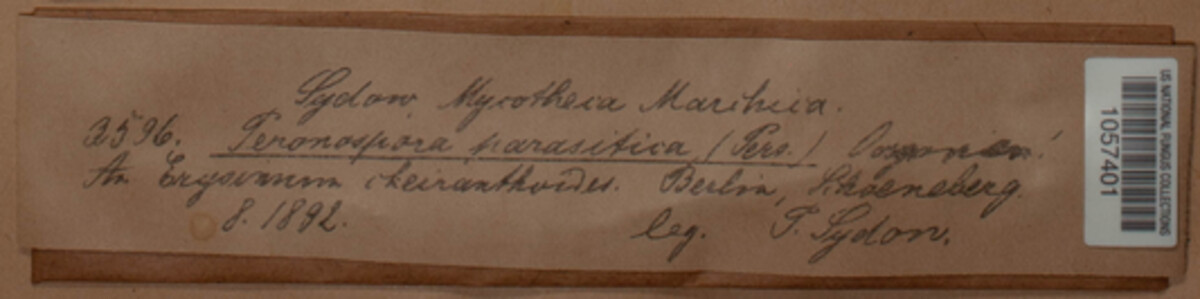 Sydow Mycotheca Marchica.
3596. Peronospora parasitica (Pers.) Oogonien!
An Erysimum cheiranthoides. Berlin, Schoeneberg.
8. 1892.
leg. P. Sydow.
US NATIONAL FUNGUS COLLECTIONS
1057401